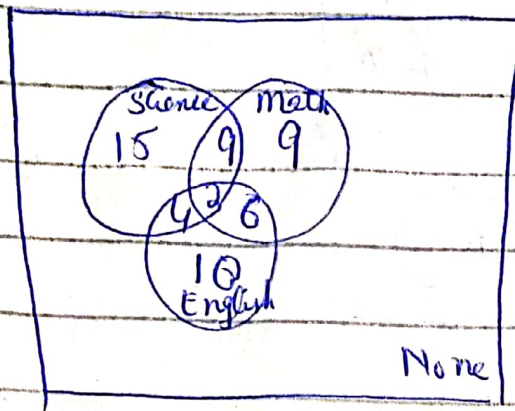 Science Math
15 9 9
4 3 6
10
English
None